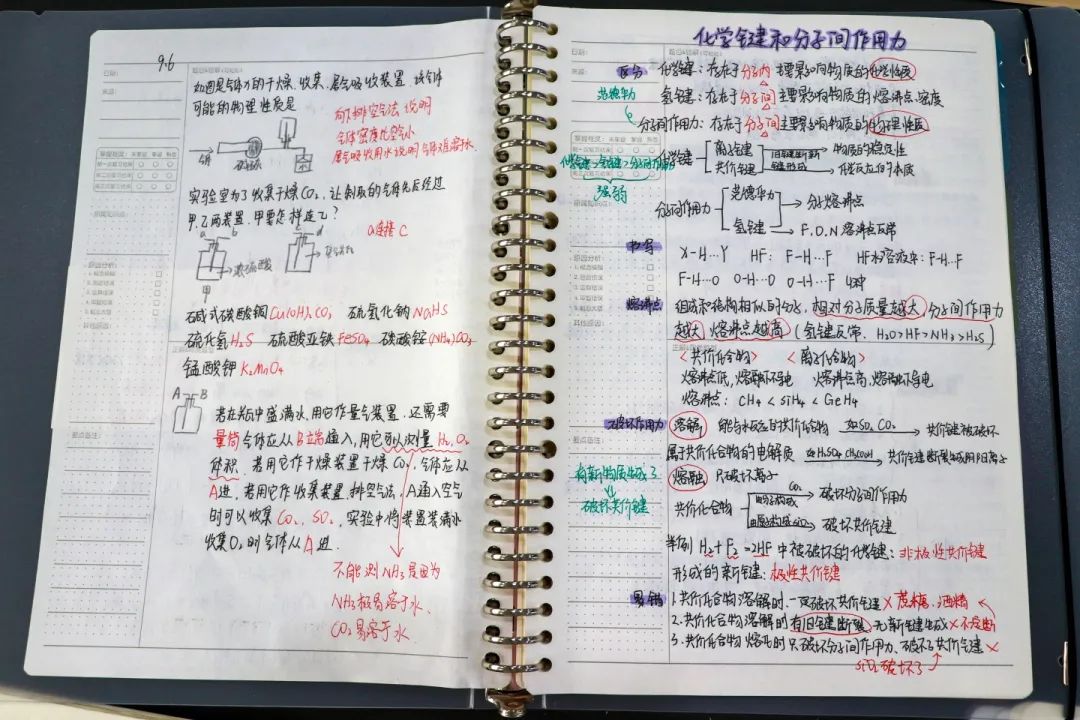 9.6
如图是气体X的干燥、收集、尾气吸收装置,该气体
可能的物理性质是
向下排空气法 说明
气体密度比空气小
尾气吸收用水说明气体难溶水.
气体
碱石灰
实验室为了收集干燥CO₂,让制取的气体先后经过
甲、乙两装置,甲要怎样连乙?
a连接C
a b
c d
浓硫酸
甲
碱式碳酸铜Cu₂(OH)₂CO₃ 硫氢化钠NaHS
硫化氢H₂S 硫酸亚铁FeSO₄ 碳酸铵(NH₄)₂CO₃
锰酸钾K₂MnO₄
A B
若在关后中盛满水,用它作量气装置,还需要
量筒气体应从B端通入,用它可以测量H₂、O₂
体积,若用它作干燥装置干燥CO₂,气体应从
A进,若用它作收集装置,排空气法,A通入空气
时可以收集CO₂、SO₂,实验中将装置装满水
收集O₂时气体从A进.
不能测NH₃是因为
NH₃极易溶于水、
CO₂易溶于水
化学键和分子间作用力
区分 化学键:存在于分子内主要影响物质的化学性质
范德华力 氢键:存在于分子间主要影响物质的熔沸点、密度
分子间作用力:存在于分子间主要影响物质的物理性质
化学键>氢键>分子间作用力
强弱
化学键 离子键 共价键 旧键断裂新键形成 物质的稳定性
化学反应的本质
分子间作用力 范德华力 分子熔沸点
氢键 F.O.N 熔沸点反常
书写 X-H…Y HF: F-H…F HF水溶液中: F-H…F
F-H…O O-H…O O-H…F 4种
熔沸点 组成和结构相似的分子,相对分子质量越大,分子间作用力
越大 熔沸点越高(氢键反常,H₂O>HF>NH₃>H₂S)
<共价化合物> <离子化合物>
熔沸点低,熔融不导电 熔沸点高,熔融导电
熔沸点: CH₄ < SiH₄ < GeH₄
破坏作用力 溶解 能与水反应的共价化合物 如SO₂ CO₂ 共价键被破坏
属于共价化合物的电解质 如H₂SO₄ CH₃COOH 共价键断裂生成阴阳离子
有新物质生成了
破坏共价键
熔融 只破坏离子
共价化合物 由分子构成 CO₂ 破坏分子间作用力
由原子构成SiO₂ 破坏共价键
举例 H₂+F₂=2HF 中被破坏的化学键:非极性共价键
形成的新键:极性共价键
易错 1.共价化合物溶解时,一定破坏共价键 × 蔗糖、酒精
2.共价化合物溶解时有旧键断裂,无新键生成 × 不发断
3.共价化合物熔化时只破坏分子间作用力、破坏了共价键 ×
SiO₂破坏了